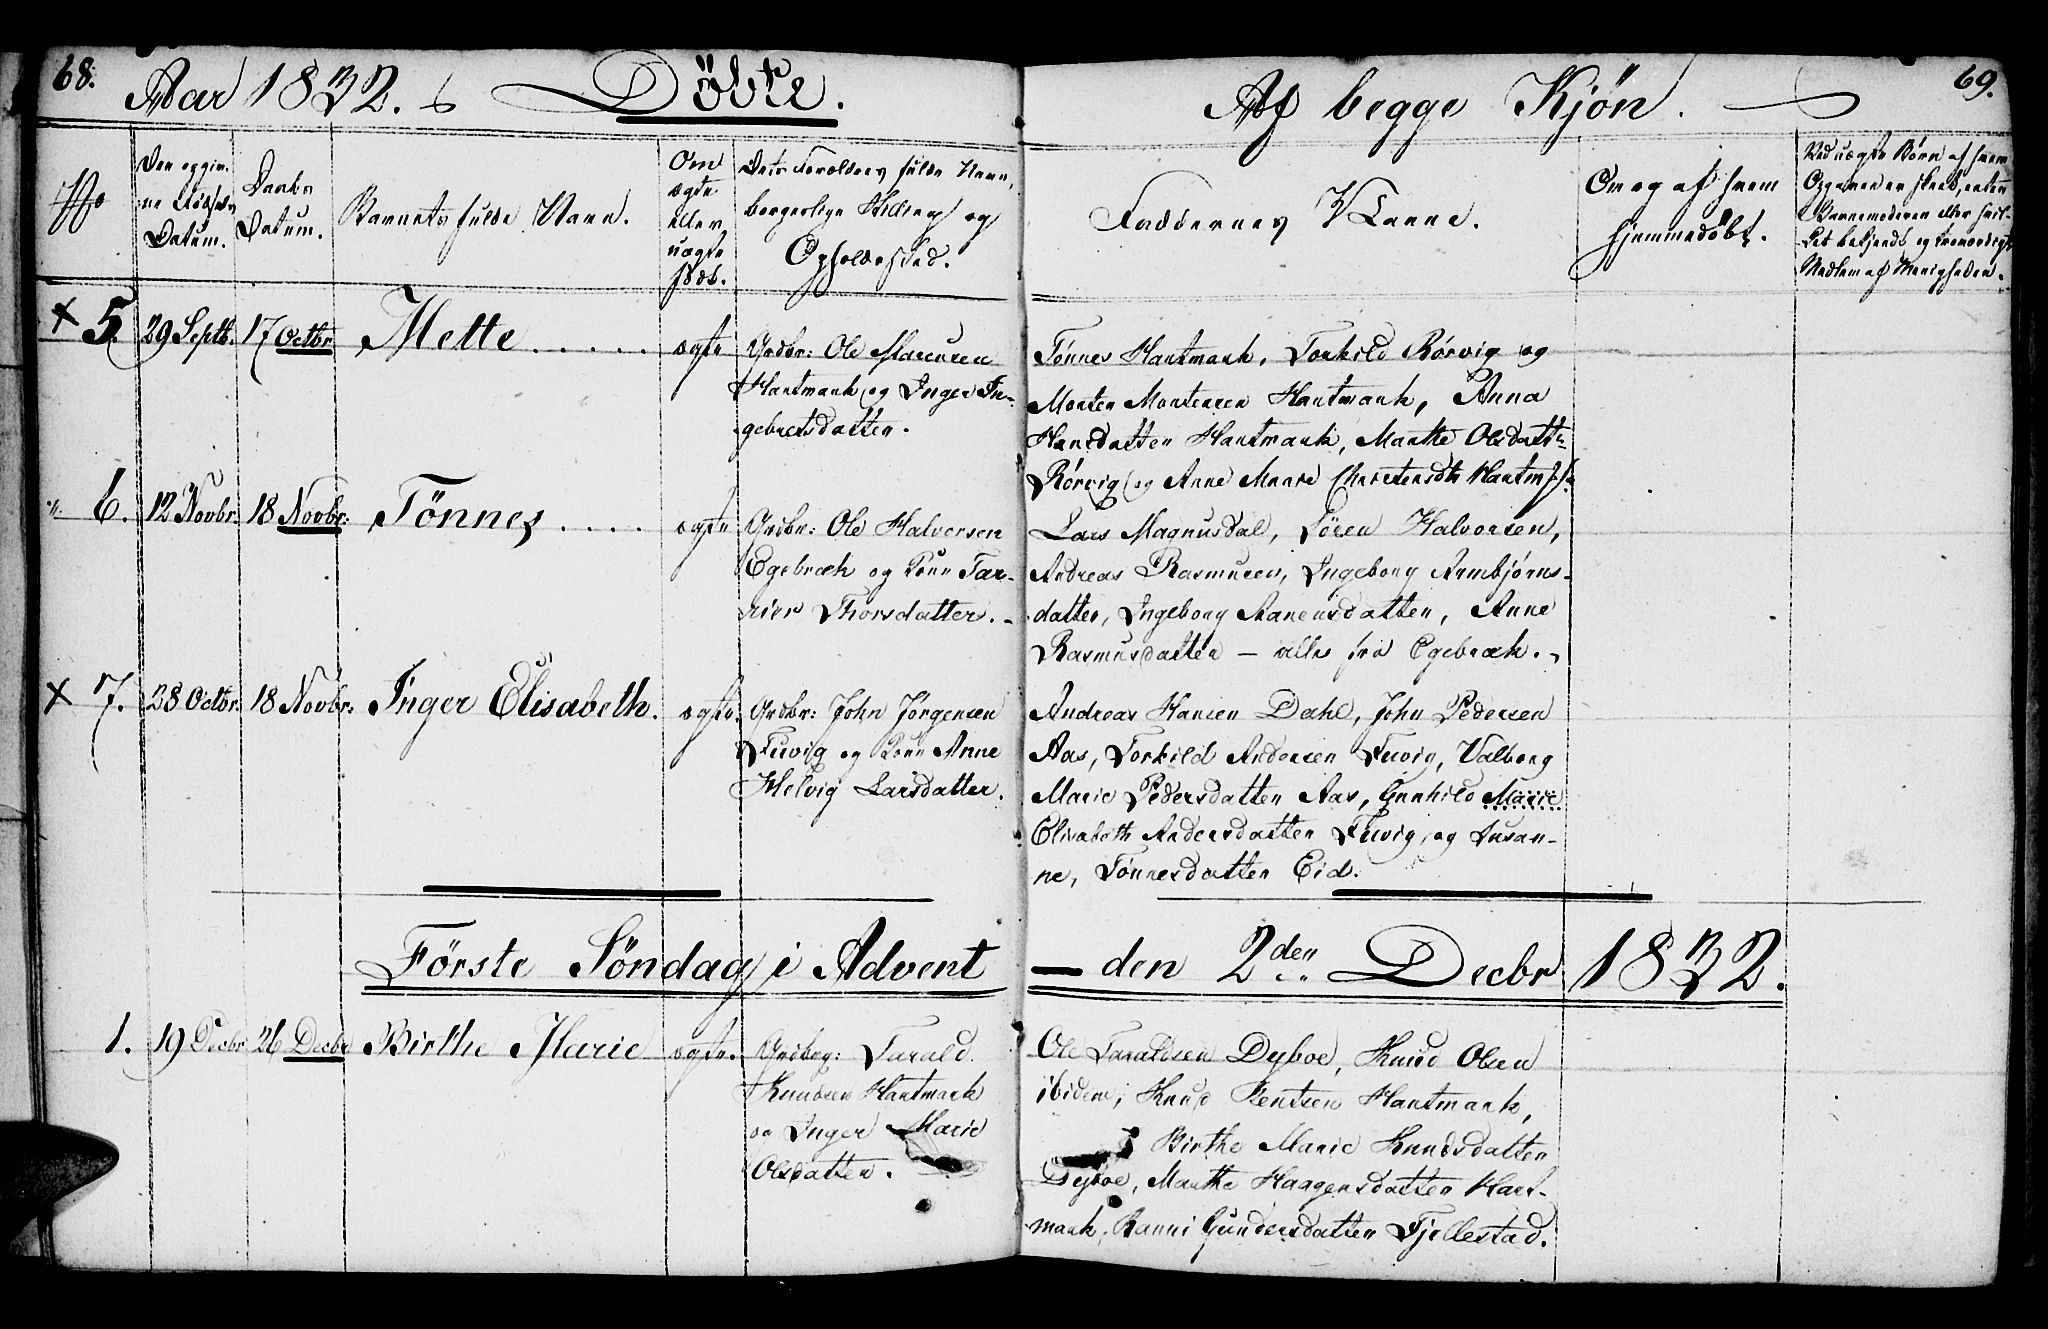 68.
Aar 1832.
Döbte.
Af begge Kjön.
69.
No
Den opgiv-
ne Födsels
Datum.
Daabs
Datum.
Barnets fulde Navn.
Om
ægte
eller
uægte
födt.
Deres Forældres fulde Navn,
borgerlige Stilling og
Opholdssted.
Faddernes Navne.
Om og af hvem
hjemmedøbt.
Ved uægte Børn af hvem
Opgaven er skeet, enten
Barnemoderen eller
bekjendt og troværdigt
Medlem af Menigheden.
× 5. 29 Septb. 17 Octbr Mette . . . . . ægte
Grdbr: Ole
Hantmark og Inger In-
gebretsdatter.
Tönnes Hantmark, Torkild Rörvig og
Morten Mortensen Hantmark, Anna
Hansdatter Hantmark, Marthe Olsdattr
Rörvig og Anne Marie Christensdtr
6. 12 Novbr. 18 Novbr: Tönnes . . . . ægte
Grdbr: Ole Halvorsen
Egebræk og Kone Tar-
Thorsdatter.
Lars Magnusdal, Sören Halvorsen,
Andreas Rasmusen, Ingeborg Armbjørns-
datter, Ingeborg Aanensdatter, Anne
Rasmusdatter — alle fra Egebræk.
× 7. 28 Octbr. 18 Novbr: Inger Elisabeth. ægte.
Grdbr: John Jörgensen
Fuvig og Kone Anne
Helvig Larsdatter.
Andreas Hansen Dahl, John Pedersen
Aas, Torkild Andersen Fuvig, Valborg
Marie Pedersdatter Aas, Gunhild Marie
Elisabeth Andersdatter Fuvig, og Susan-
ne, Tönnesdatter Eid.
Förste Söndag i Advent — den 2den Decbr 1832.
1. 19 Decbr 26 Decbr Birthe Marie ægte.
Grdbrg: Tarald
Knudsen Hantmark
og Inger Marie
Olsdatter.
Ole Taraldsen Dyboe, Knud Olsen
ibidem, Knud Jentsen Hantmark,
Birthe Marie Knudsdatter
Dyboe, Marthe Haagensdatter Hant-
mark, Ranni Gundersdatter Fjellestad.